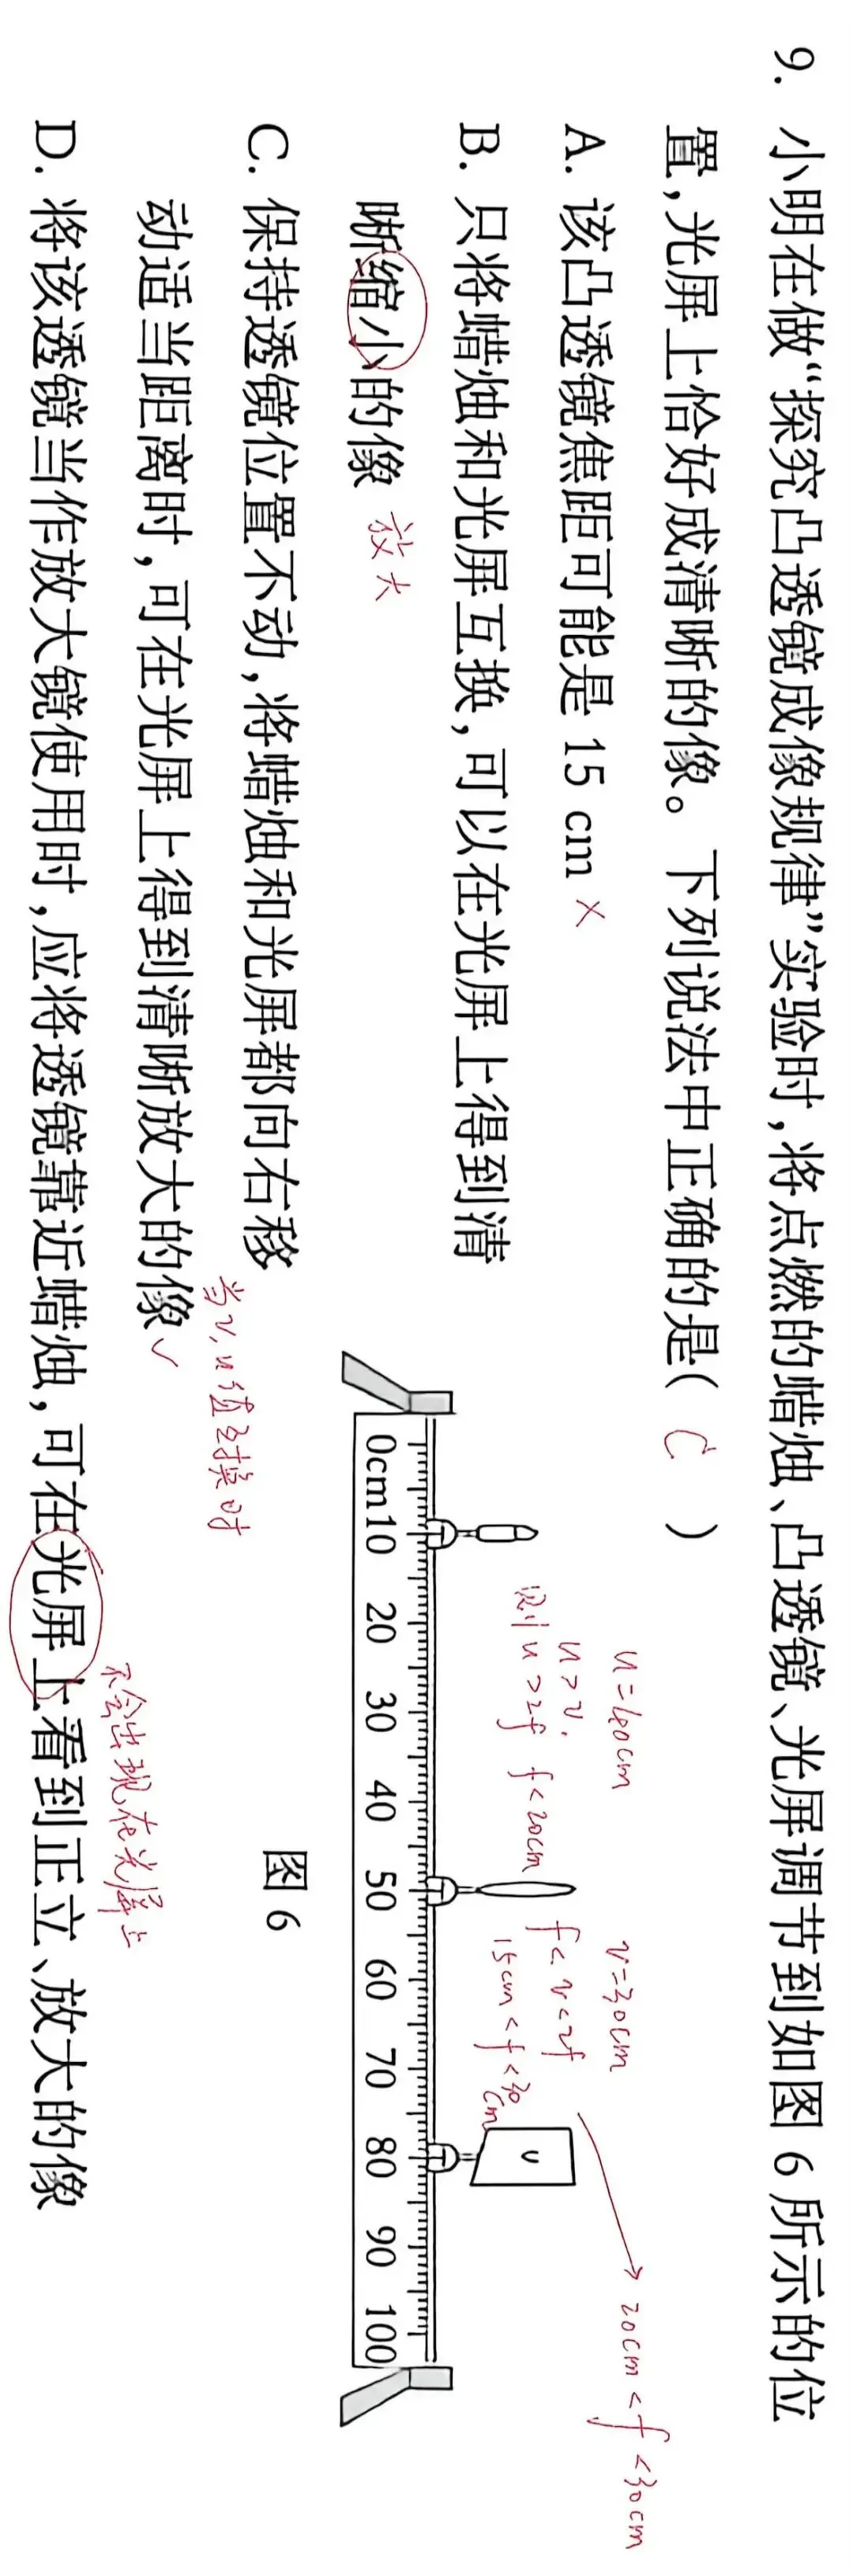 9. 小明在做“探究凸透镜成像规律”实验时,将点燃的蜡烛、凸透镜、光屏调节到如图 6 所示的位
置,光屏上恰好成清晰的像。下列说法中正确的是( C )
A. 该凸透镜焦距可能是 15 cm ×
B. 只将蜡烛和光屏互换,可以在光屏上得到清
晰缩小的像 放大
C. 保持透镜位置不动,将蜡烛和光屏都向右移
动适当距离时,可在光屏上得到清晰放大的像 ✓
当v,u值互换时
D. 将该透镜当作放大镜使用时,应将透镜靠近蜡烛,可在光屏上看到正立、放大的像
不会出现在光屏上
u=40cm
u>v.
则 u>2f f<20cm
v=30cm
f<v<2f
15cm<f<30cm
20cm<f<30cm
0cm10 20 30 40 50 60 70 80 90 100
图 6